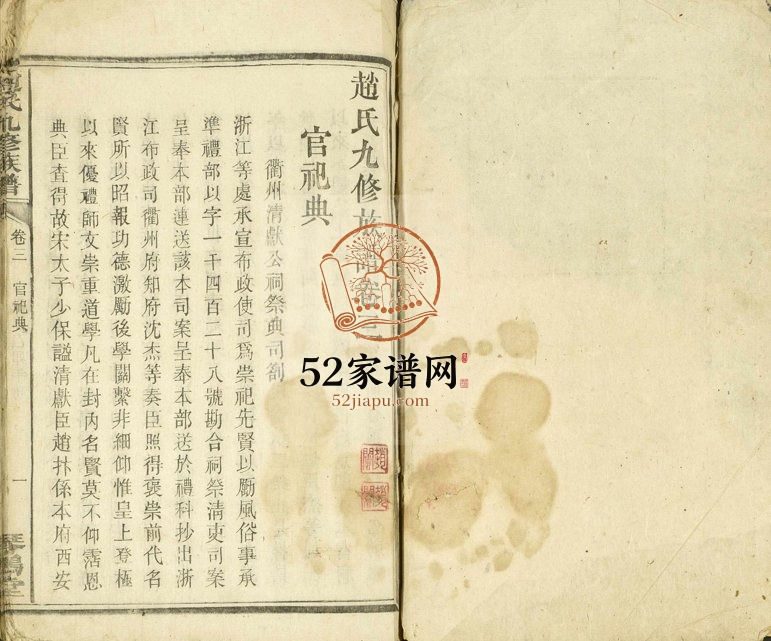 趙氏九修族譜卷三
官祀典
衢州清獻公祠祭典司劄
浙江等處承宣布政使司爲崇祀先賢以勵風俗事承
準禮部以字一千四百二十八號勘合祠祭清吏司案
呈奉本部連送該本司案呈奉本部送於禮科抄出浙
江布政司衢州府知府沈杰等奏臣照得褒崇前代名
賢所以昭報功德激勵後學關繫非細仰惟皇上登極
以來優禮師文崇重道學凡在封內名賢莫不仰霑恩
典臣查得故宋太子少保謚清獻臣趙抃係本府西安
趙氏九修族譜
卷三 官祀典
一
琴鶴堂
52家谱网
52jiapu.com